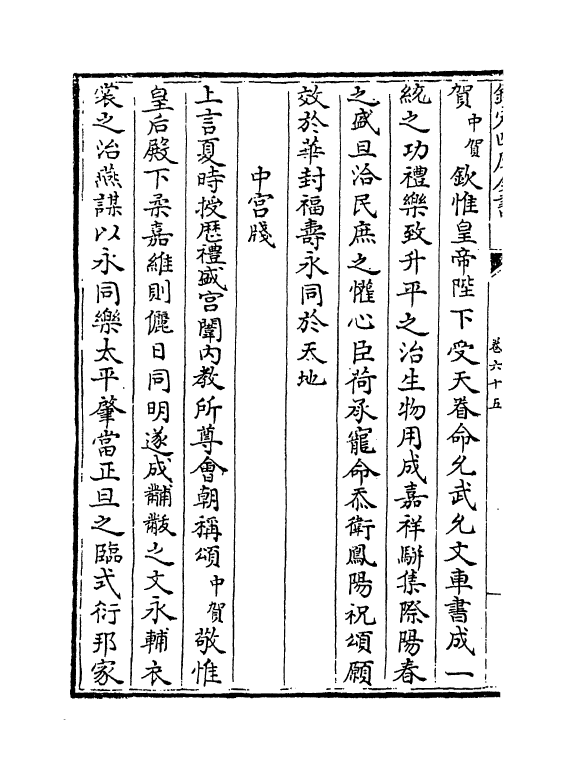 欽定四庫全書
卷六十五
賀中賀欽惟皇帝陛下受天眷命允武允文車書成一
統之功禮樂致升平之治生物用成嘉祥駢集際陽春
之盛旦洽民庶之懽心臣荷承寵命忝衛鳳陽祝頌願
效於華封福壽永同於天地
中宫牋
上言夏時授厯禮盛宫闈内教所尊會朝稱頌中賀敬惟
皇后殿下柔嘉維則儷日同明遂成黼黻之文永輔衣
裳之治燕謀以永同樂太平肇當正旦之臨式衍邦家